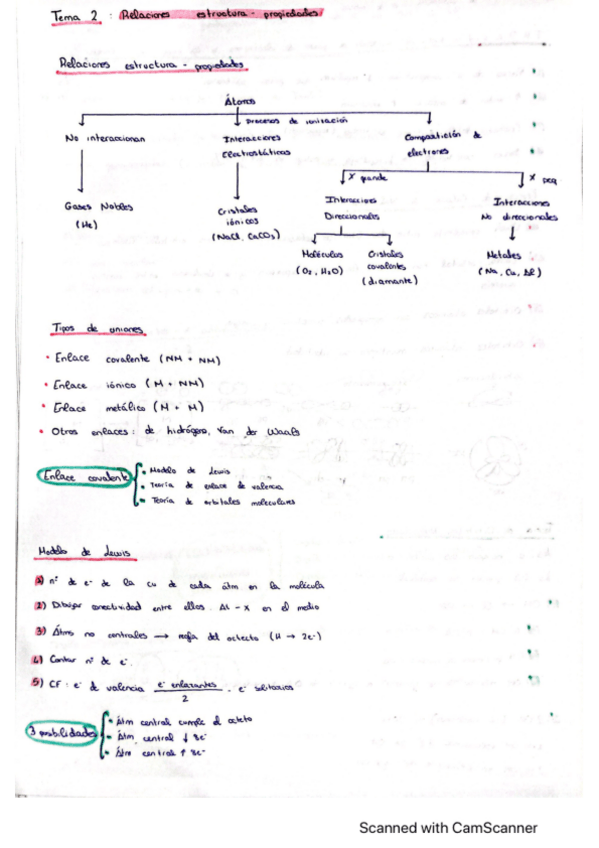 Tema 2 : Relaciones estructura - propiedades
Relaciones estructura - propiedades
Átomos
Procesos de ionización
No interaccionan
Interacciones Electrostáticas
Compartición de electrones
X grande
X peq
Gases Nobles (He)
Cristales iónicos (NaCl, CaCO3)
Interacciones Direccionales
Interacciones No direccionales
Moléculas (O2, H2O)
Cristales covalentes (diamante)
Metales (Na, Cu, Al)
Tipos de uniones
• Enlace covalente (NM + NM)
• Enlace iónico (M + NM)
• Enlace metálico (M + M)
• Otros enlaces: de hidrógeno, Van der Waals
Enlace covalente
• Modelo de Lewis
• Teoría de enlace de valencia
• Teoría de orbitales moleculares
Modelo de Lewis
1) nº de e- de la cv de cada átm en la molécula
2) Dibujar conectividad entre ellos. Al - X en el medio
3) Átms no centrales → regla del octecto (H → 2e-)
4) Contar nº de e-
5) CF = e- de valencia - e- enlazantes / 2 - e- solitarios
3 posibilidades
• Átm central cumple el octeto
• Átm central ↓ 8e-
• Átm central ↑ 8e-
Scanned with CamScanner